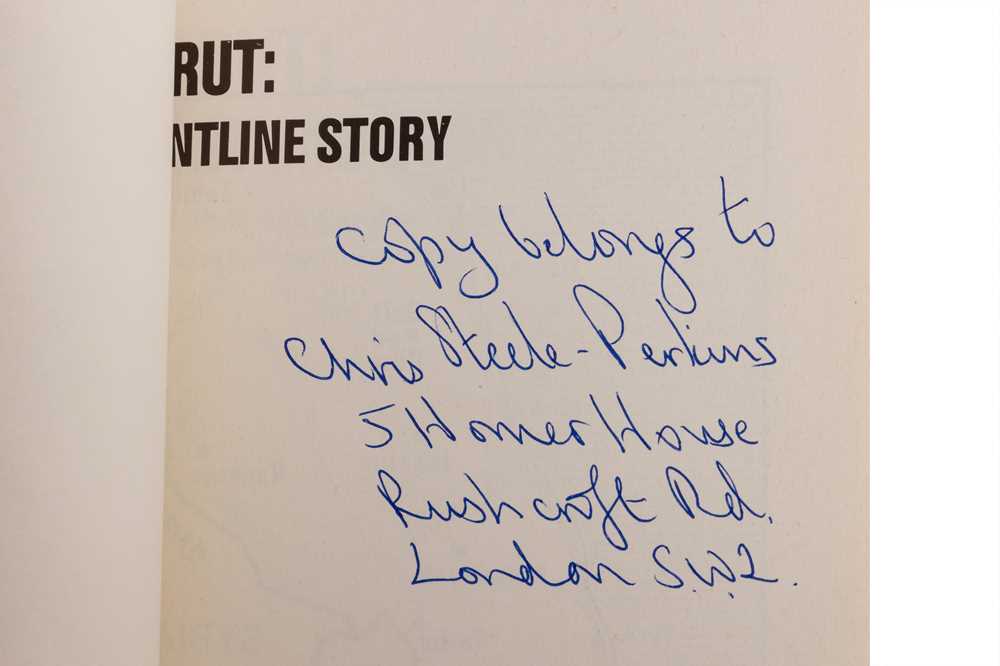 RUT:
NTLINE STORY
Copy belongs to
Chris Steele-Perkins
5 Homer House
Rushcroft Rd.
London S.W.2.